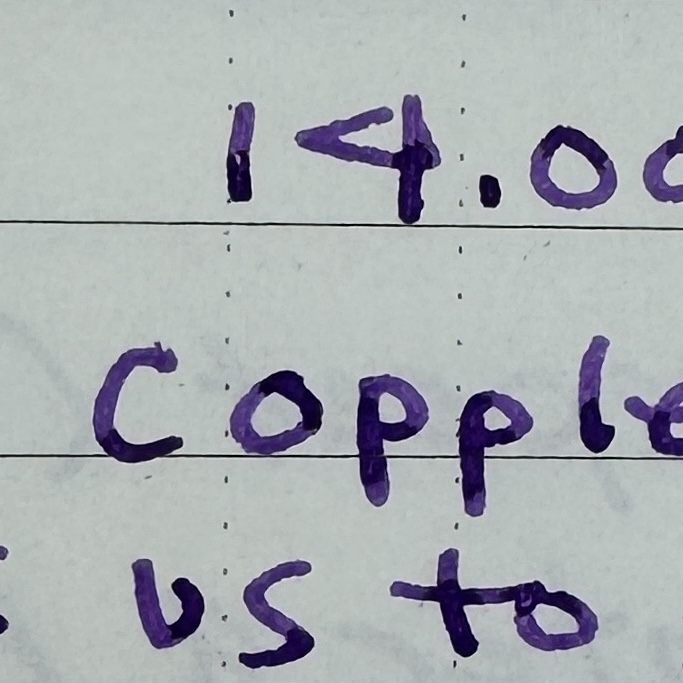 14.00
Copple
us to